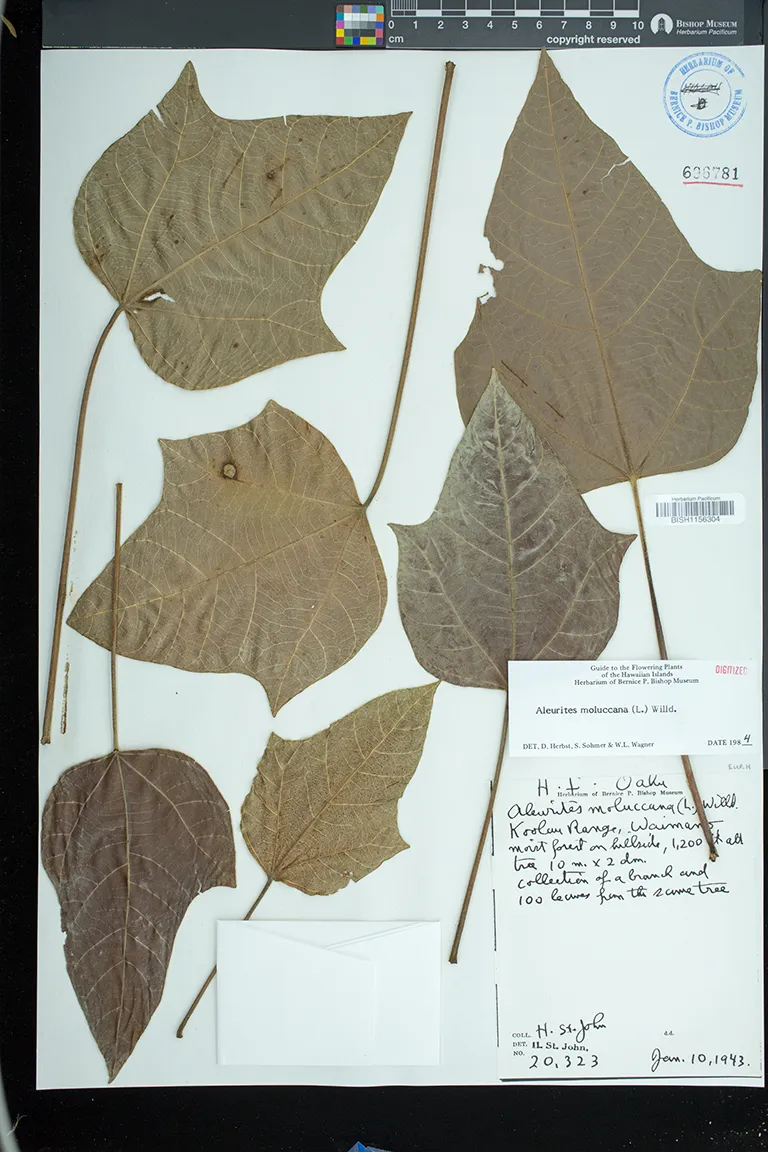 0 1 2 3 4 5 6 7 8 9 10
cm
copyright reserved
BISHOP MUSEUM
Herbarium Pacificum
HERBARIUM OF
BERNICE P. BISHOP MUSEUM
696781
Herbarium Pacificum
BISH1156304
Guide to the Flowering Plants
of the Hawaiian Islands
Herbarium of Bernice P. Bishop Museum
DIGITIZED
Aleurites moluccana (L.) Willd.
DET. D. Herbst, S. Sohmer & W.L. Wagner
DATE 1984
EUPH
H. I. Oahu
Herbarium of Bernice P. Bishop Museum
Aleurites moluccana (L.) Willd.
Koolau Range, Waimano
moist forest on hillside, 1,200 ft alt
tree 10 m. x 2 dm.
collection of a branch and
100 leaves from the same tree
COLL. H. St. John
d.d.
DET. H. St. John,
NO. 20,323
Jan. 10, 1943.